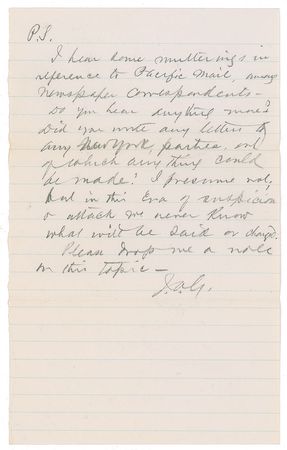 P.S.
I hear some mutterings in
reference to Pacific Mail, among
Newspaper Correspondents—
Do you hear anything more?
Did you write any letters to
any New York, parties, out
of which any thing could
be made? I presume not,
but in this Era of suspicion
& attack we never know
what will be said or charged.
Please drop me a note
on this topic—
J.A.G.